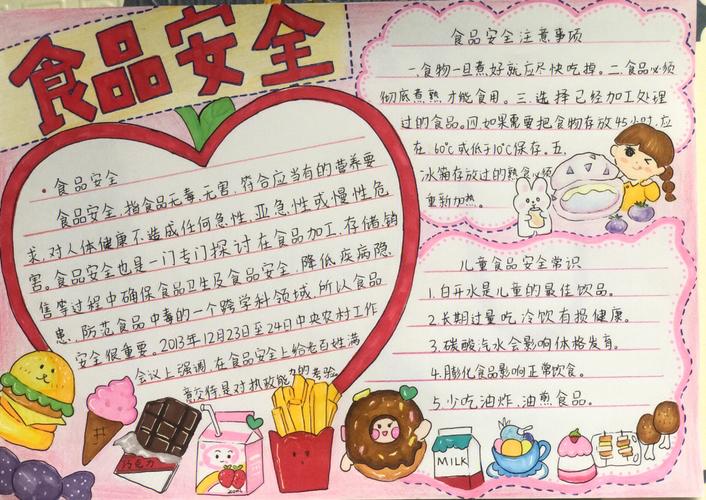 食品安全
•食品安全
食品安全,指食品无毒、无害,符合应当有的营养要
求,对人体健康不造成任何急性、亚急性或慢性危
害。食品安全也是一门专门探讨在食品加工、存储、销
售等过程中确保食品卫生及食品安全,降低疾病隐
患、防范食品中毒的一个跨学科领域,所以食品
安全很重要。2013年12月23日至24日中央农村工作
会议上强调,在食品安全上给老百姓满
意交待,是对执政能力的考验
食品安全注意事项
一.食物一旦煮好就应尽快吃掉。二.食品必须
彻底煮熟才能食用。三.选择已经加工处理
过的食品。四.如果需要把食物存放45小时,应
在60℃或低于10℃保存。五.
冰箱存放过的熟食必须
重新加热。
儿童食品安全常识
1.白开水是儿童的最佳饮品。
2.长期过量吃冷饮有损健康。
3.碳酸汽水会影响体格发育。
4.膨化食品影响正常饮食。
5.少吃油炸、油煎食品。
巧克力
MILK